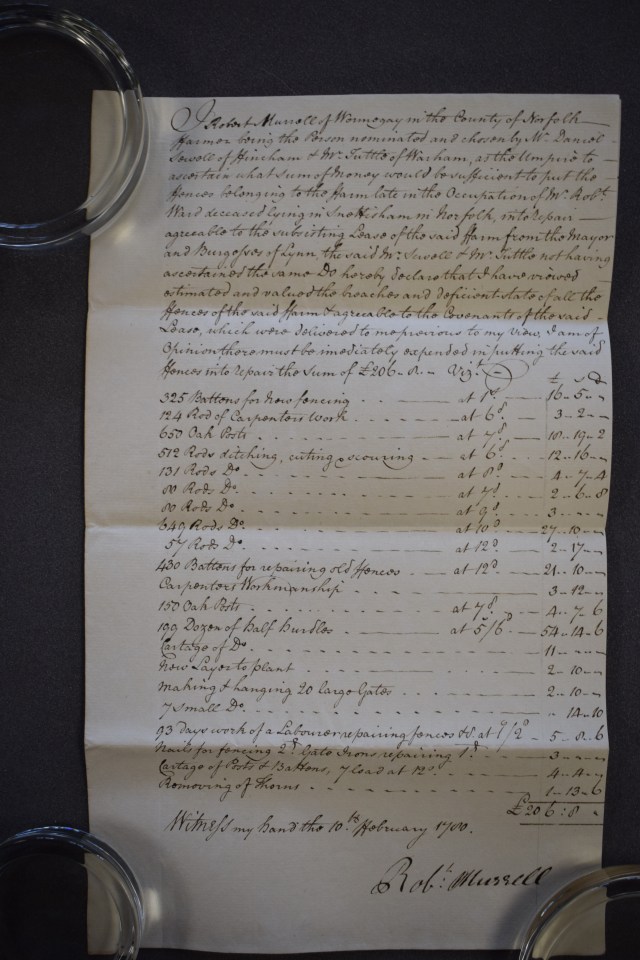 I Robert Murrell of Wormegay in the County of Norfolk
Farmer being the Person nominated and chosen by Mr. Daniel
Sewell of Hincham & Mr. Tuttle of Warham, as the Umpire to
ascertain what Sum of Money would be sufficient to put the
Fences belonging to the Farm late in the Occupation of Mr. Robt.
Ward deceased lying in Snettisham in Norfolk, into repair
agreeable to the subsisting Lease of the said Farm from the Mayor
and Burgesses of Lynn, the said Mr. Sewell & Mr. Tuttle not having
ascertained the same Do hereby declare that I have viewed
estimated and valued the breaches and deficient state of all the
Fences of the said Farm & agreeable to the Covenants of the said
Lease, which were delivered to me previous to my view, I am of
Opinion there must be imediately expended in putting the said
Fences into repair the Sum of £206.. 8.. - Vizt.
£ s d
325 Battons for New fencing - at 1s. - 16.. 5.. -
124 Rod of Carpenters work - at 6d. - 3.. 2.. -
650 Oak Posts - at 7d. - 18.. 19.. 2
512 Rods ditching, cuting & scouring - at 6d. - 12.. 16.. -
131 Rods Do. - at 8d. - 4.. 7.. 4
80 Rods Do. - at 7d. - 2.. 6.. 8
80 Rods Do. - at 9d. - 3.. -
649 Rods Do. - at 10d. - 27.. 10.. -
57 Rods Do. - at 12d. - 2.. 17.. -
430 Battons for repairing old Fences - at 12d. - 21.. 10.. -
Carpenters Workmanship - 3.. 12.. -
150 Oak Posts - at 7d. - 4.. 7.. 6
199 Dozen of Half Hurdles - at 5s/6d - 54.. 14.. 6
Cartage of Do. - 11.. -
New Layer to plant - 2.. 10.. -
Making & hanging 20 large Gates - 2.. 10.. -
7 Small Do. - .. 14.. 10
93 Days work of a Labourer repairing fences &c. at 1s/2d - 5.. 8.. 6
Nails for fencing 2d. Gate Irons, repairing 1d. - 3.. -
Cartage of Posts & Battons, 7 load at 12s. - 4.. 4.. -
Removing of Thorns - 1.. 13.. 6
£206 : 8 ..
Witness my hand the 10th. February 1780.
Robt. Murrell